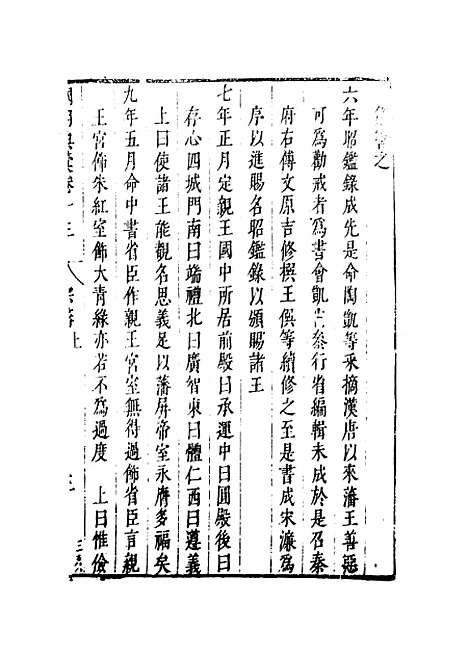 之
六年昭鑑錄成先是命陶凱等采摘漢唐以來藩王善惡
可為勸戒者為書會凱出叅行省編輯未成於是召秦
府右傅文原吉修撰王僎等續修之至是書成宋濂為
序以進賜名昭鑑錄以頒賜諸王
七年正月定親王國中所居前殿曰承運中曰圓殿後曰
存心四城門南曰端禮北曰廣智東曰體仁西曰遵義
上曰使諸王能觀名思義足以藩屏帝室永膺多福矣
九年五月命中書省臣作親王宮室無得過飾省臣言親
王宮飾朱紅室飾大青綠亦若不為過度 上曰惟儉
卷十三 宗藩上 三